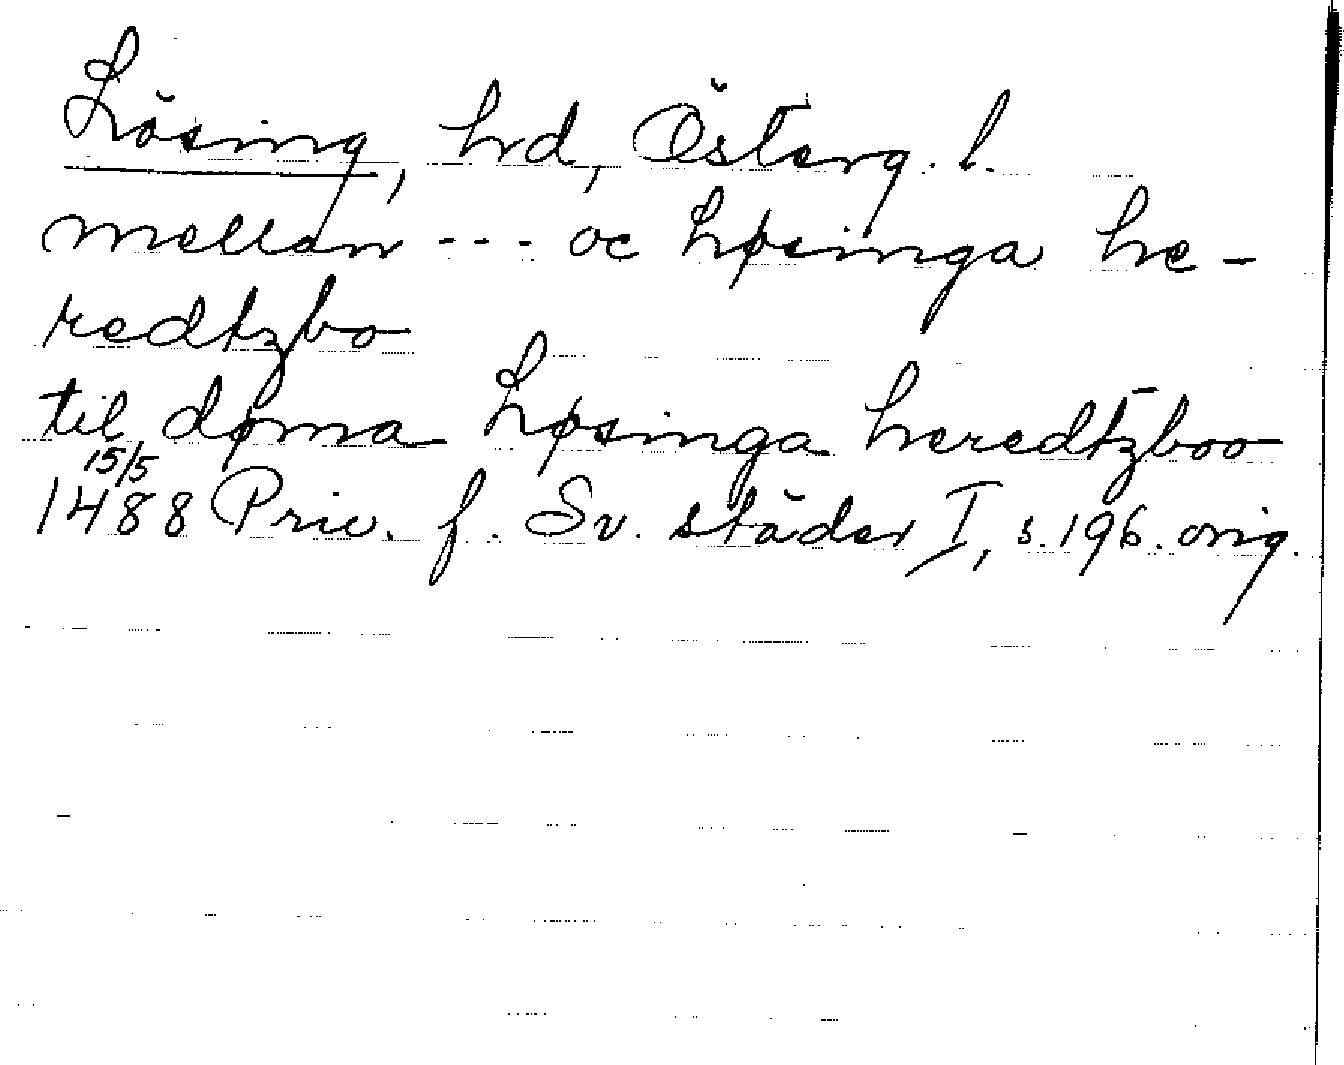 Lösing, hrd, Österg. l.
mellan --- oc Løsinga he-
redtzbo
til døma Løsinga heredtzboo
15/5
1488 Priv. f. Sv. städer I, s. 196. orig.